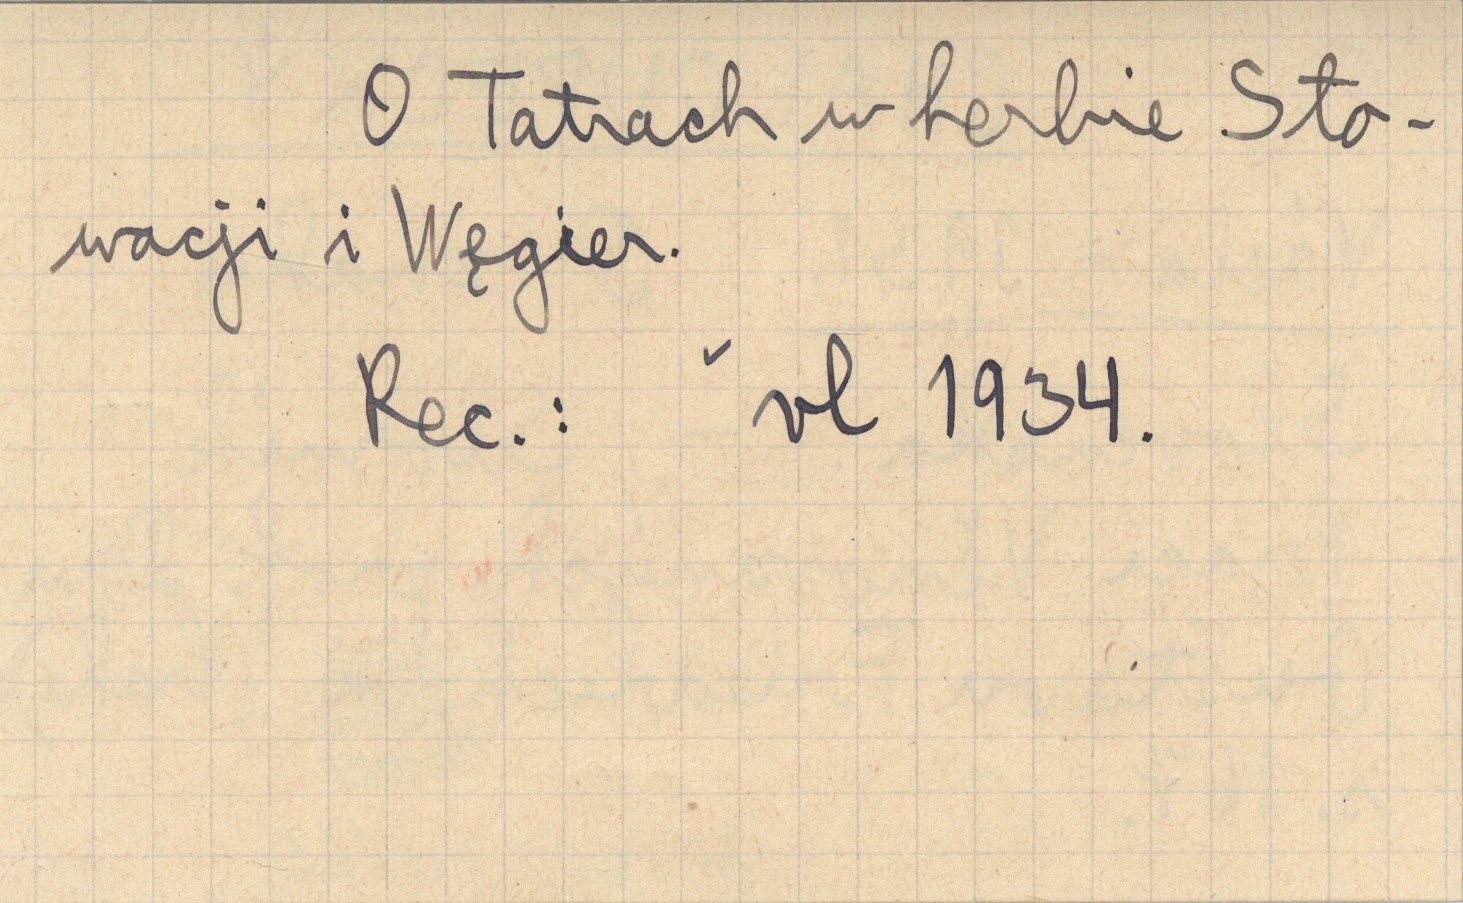 O Tatrach w herbie Sło-
wacji i Węgier.
Rec.: ˇ vl 1934.